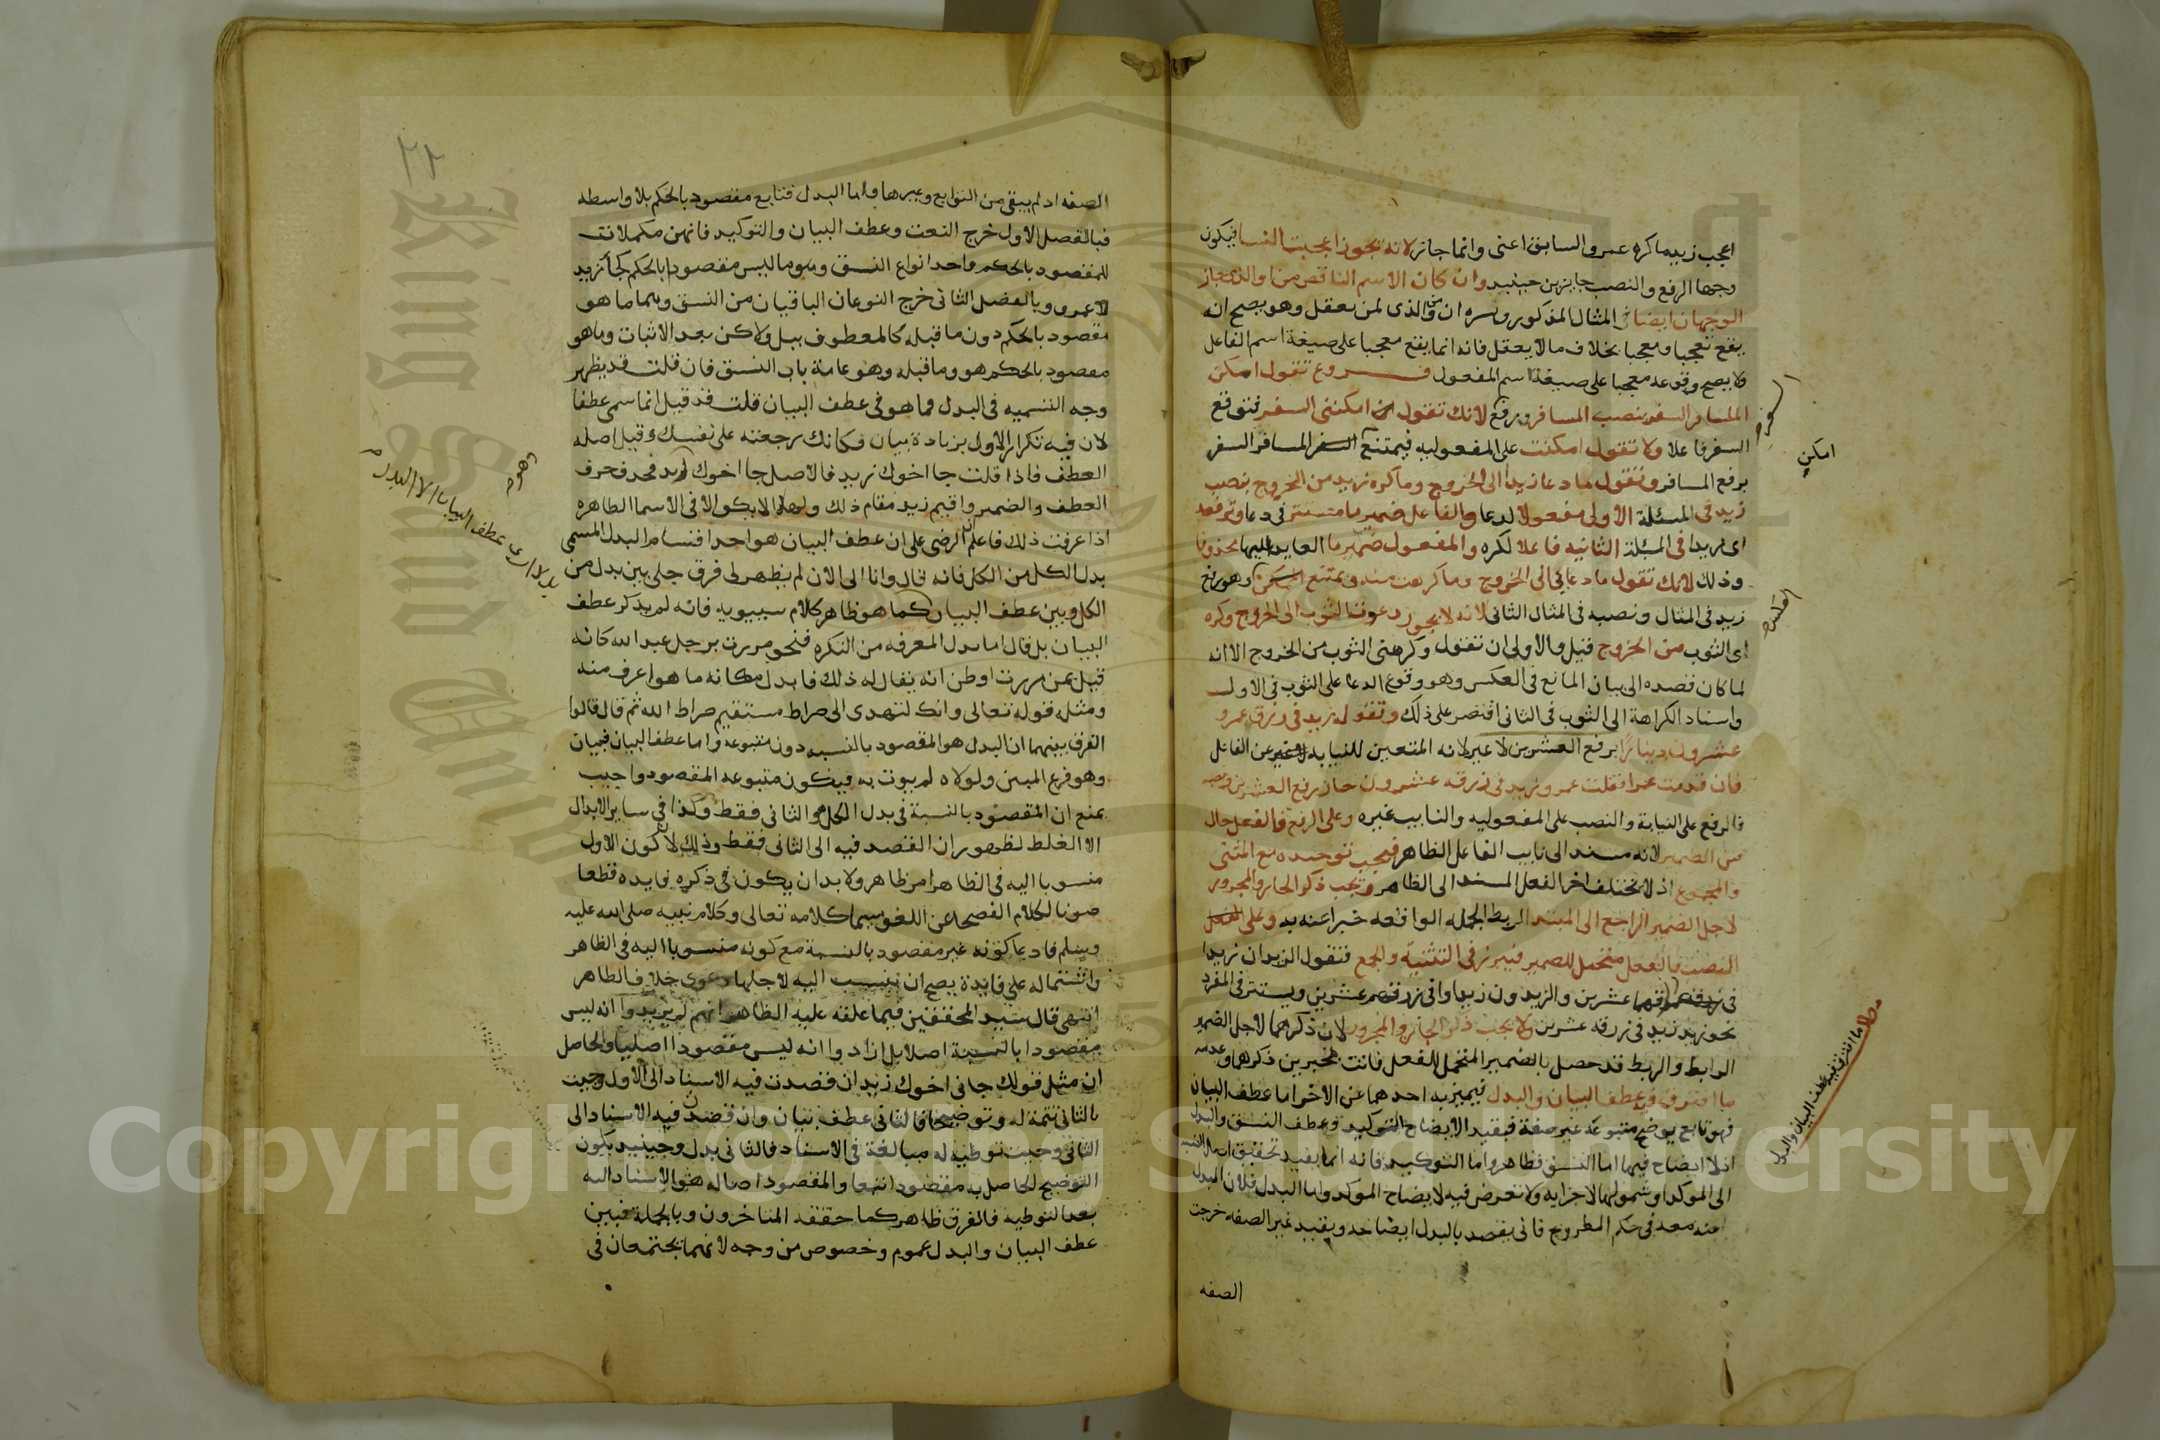 اعجب زيد ما كره عمرو السابق اعنى وانما جاز لانه يجوز اعجبت النسا فيكون
وجها الرفع والنصب جايزين حينيد وان كان الاسم الناقص من او الذى جاز
الوجهان ايضا فى المثال المذكور وسره ان من والذى لمن يعقل وهو يصح ان
يقع معجبا ومعجبا بخلاف ما لا يعقل فانه انما يقع معجبا على صيغة اسم الفاعل
ولا يصح وقوعه معجبا على صيغة اسم المفعول فروع تقول امكن
المسافر السفر بنصب المسافر ورفع لانك تقول امكننى السفر فتوقع
السفر فاعلا ولا تقول امكنت على المفعوليه فيمتنع السفر المسافر السفر
برفع المسافر وتقول ما دعا زيدا الى الخروج وما كره زيد من الخروج بنصب
زيد فى المسئلة الاولى مفعولا لدعا والفاعل ضمير ما مستتر فى دعا وترفعه
اى زيدا فى المسئلة الثانيه فاعلا لكره والمفعول ضمير ما العايد اليها محذوفا
وذلك لانك تقول ما دعانى الى الخروج وما كرهت منه ويمتنع العكس وهو رفع
زيد فى المثال ونصبه فى المثال الثانى لانه لا يجوز دعوت الثوب الى الخروج وكره
اى الثوب من الخروج قيل والاولى ان تقول وكرهنى الثوب من الخروج الا انه
لما كان قصده الى بيان المانع فى العكس وهو وقوع الدعا على الثوب فى الاول
واسناد الكراهة الى الثوب فى الثانى اقتصر على ذلك وتقول زيد فى رزق عمرو
عشرون دينارا برفع العشرين لا غير لانه المتعين للنيابه عن الفاعل
فان قدمت عمرا فقلت عمرو زيد فى رزقه عشرون جاز رفع العشرين ونصبه
فالرفع على النيابة والنصب على المفعوليه والنايب غيره وعلى الرفع فالفعل خال
من الضمير لانه مسند الى نايب الفاعل الظاهر فيجب توحيده مع المثنى
والمجموع اذ لا تختلف اخر الفعل المسند الى الظاهر ويجب ذكر الجار والمجرور
لاجل الضمير الراجع الى المبتدا لربط الجمله الواقعه خبرا عنه به وعلى
النصب فالفعل متحمل للضمير فيبرز فى التثنية والجمع فتقول الزيدان زيدا
فى رزقهما عشرين والزيدون زيدوا فى رزقهم عشرين ويستتر فى المفرد
نحو زيد زيد فى رزقه عشرين ولا يجب ذكر الجار والمجرور لان ذكرهما لاجل الضمير
الرابط والربط قد حصل بالضمير المتحمل للفعل فانت مخير بين ذكرهما وعدمه
ما افترق فيه عطف البيان والبدل فيميز به احدهما عن الاخر اما عطف البيان
فهو تابع يوضح متبوعه غير صفة فبقيد الايضاح التوكيد وعطف النسق والبدل
اذ لا ايضاح فيها اما النسق فظاهر واما التوكيد فانه انما يفيد تحقيق
الى الموكد او شمولها لاجزايه ولا تعرض فيه لايضاح الموكد واما البدل فلان المبدل
منه معه فى حكم المطروح فانى يقصد بالبدل ايضاحه وبقيد غير الصفه خرجت
الصفه
امكن
ما افترق فيه عطف البيان والبدل
٢٢
الصفه اذ لم يبق من التوابع وغيرها واما البدل فتابع مقصود بالحكم بلا واسطه
فبالفصل الاول خرج النعت وعطف البيان والتوكيد فانهن مكملات
للمقصود بالحكم واحد انواع النسق وهو ما ليس مقصودا بالحكم كجا زيد
لا عمرو وبالفصل الثانى خرج النوعان الباقيان من النسق وهما ما هو
مقصود بالحكم دون ما قبله كالمعطوف ببل ولاكن بعد الاثبات وما هو
مقصود بالحكم هو وما قبله وهو عامة باب النسق فان قلت قد يظهر
وجه التسميه فى البدل فما هو فى عطف البيان قلت قد قيل انما سمى عطفا
لان فيه تكرار الاول بزيادة بيان فكانك رجعته على نفسك وقيل اصله
العطف فاذا قلت جا اخوك زيد فالاصل جا اخوك زيد فحذف حرف
العطف والضمير واقيم زيد مقام ذلك ولهذا لا يكون الا فى الاسما الظاهره
اذا عرفت ذلك فاعلم ان الرضى على ان عطف البيان هو احد اقسام البدل المسمى
بدل الكل من الكل فانه قال وانا الى الان لم يظهر لى فرق جلى بين بدل من
الكل وبين عطف البيان كما هو ظاهر كلام سيبويه فانه لم يذكر عطف
البيان بل قال اما بدل المعرفه من النكره فنحو مررت برجل عبد الله كانه
قيل بمن مررت او ظن انه يقال له ذلك فابدل مكانه ما هو اعرف منه
ومثله قوله تعالى وانك لتهدى الى صراط مستقيم صراط الله ثم قال قالوا
الفرق بينهما ان البدل هو المقصود بالنسبه دون متبوعه واما عطف البيان فبيان
وهو فرع المبين ولولاه لم يوت به فيكون متبوعه المقصود واجيب
بمنع ان المقصود بالنسبة فى بدل الكل هو الثانى فقط وكذا فى ساير الابدال
الا الغلط لظهور ان القصد فيه الى الثانى فقط وذلك لان كون الاول
منسوبا اليه فى الظاهر امر ظاهر ولا بد ان يكون فى ذكره فايده قطعا
صونا لكلام الفصحا عن اللغو سيما كلامه تعالى وكلام نبيه صلى الله عليه
وسلم فادعا كونه غير مقصود بالنسبة مع كونه منسوبا اليه فى الظاهر
واشتماله على فايدة يصح ان ينسب اليه لاجلها دعوى خلاف الظاهر
انتهى قال سيد المحققين فيما علقه عليه الظاهر انهم لم يريدوا انه ليس
مقصودا بالنسبة اصلا بل ارادوا انه ليس مقصودا اصليا والحاصل
ان مثل قولك جانى اخوك زيد ان قصدت فيه الاسناد الى الاول وجيت
بالثانى تتمة له وتوضيحا فالثانى عطف بيان وان قصدت فيه الاسناد الى
الثانى وجيت توطيه له مبالغة فى الاسناد فالثانى بدل وحينيد يكون
التوضيح الحاصل به مقصودا تبعا والمقصود اصالة هو الاسناد اليه
بعد التوطيه فالفرق ظاهر كما حققه المتاخرون وبالجملة فبين
عطف البيان والبدل عموم وخصوص من وجه لانهما يجتمعان فى
عطف البيان الا البدل
Copyright © King Saud University
King Saud University